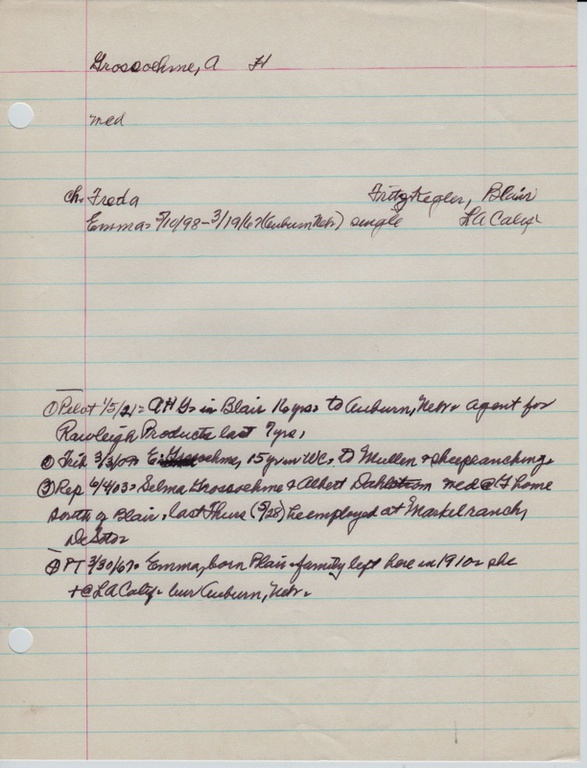 Grossoehme, A H
med
ch. Freda Fritz Kegler, Blair
Emma - 5/10/98 - 3/19/67 (Auburn Nebr) single LA Calif
① Pilot 1/5/21 = AHG - in Blair 16 yrs - to Auburn, Nebr - agent for
Rawleigh Products last 7 yrs,
② Trib 3/3/07 E. Grossoehme, 15 yrs in WC, to Mullen & sheep ranching.
③ Rep 6/4/03 = Selma Grossoehme & Albert Dahlstrom med @ G home
south of Blair, last Thurs (5/28) he employed at Markel ranch,
DeSoto
④ PT 3/30/67 - Emma, born Blair - family left here in 1910 - she
+ @ LA Calif - bur Auburn, Nebr -